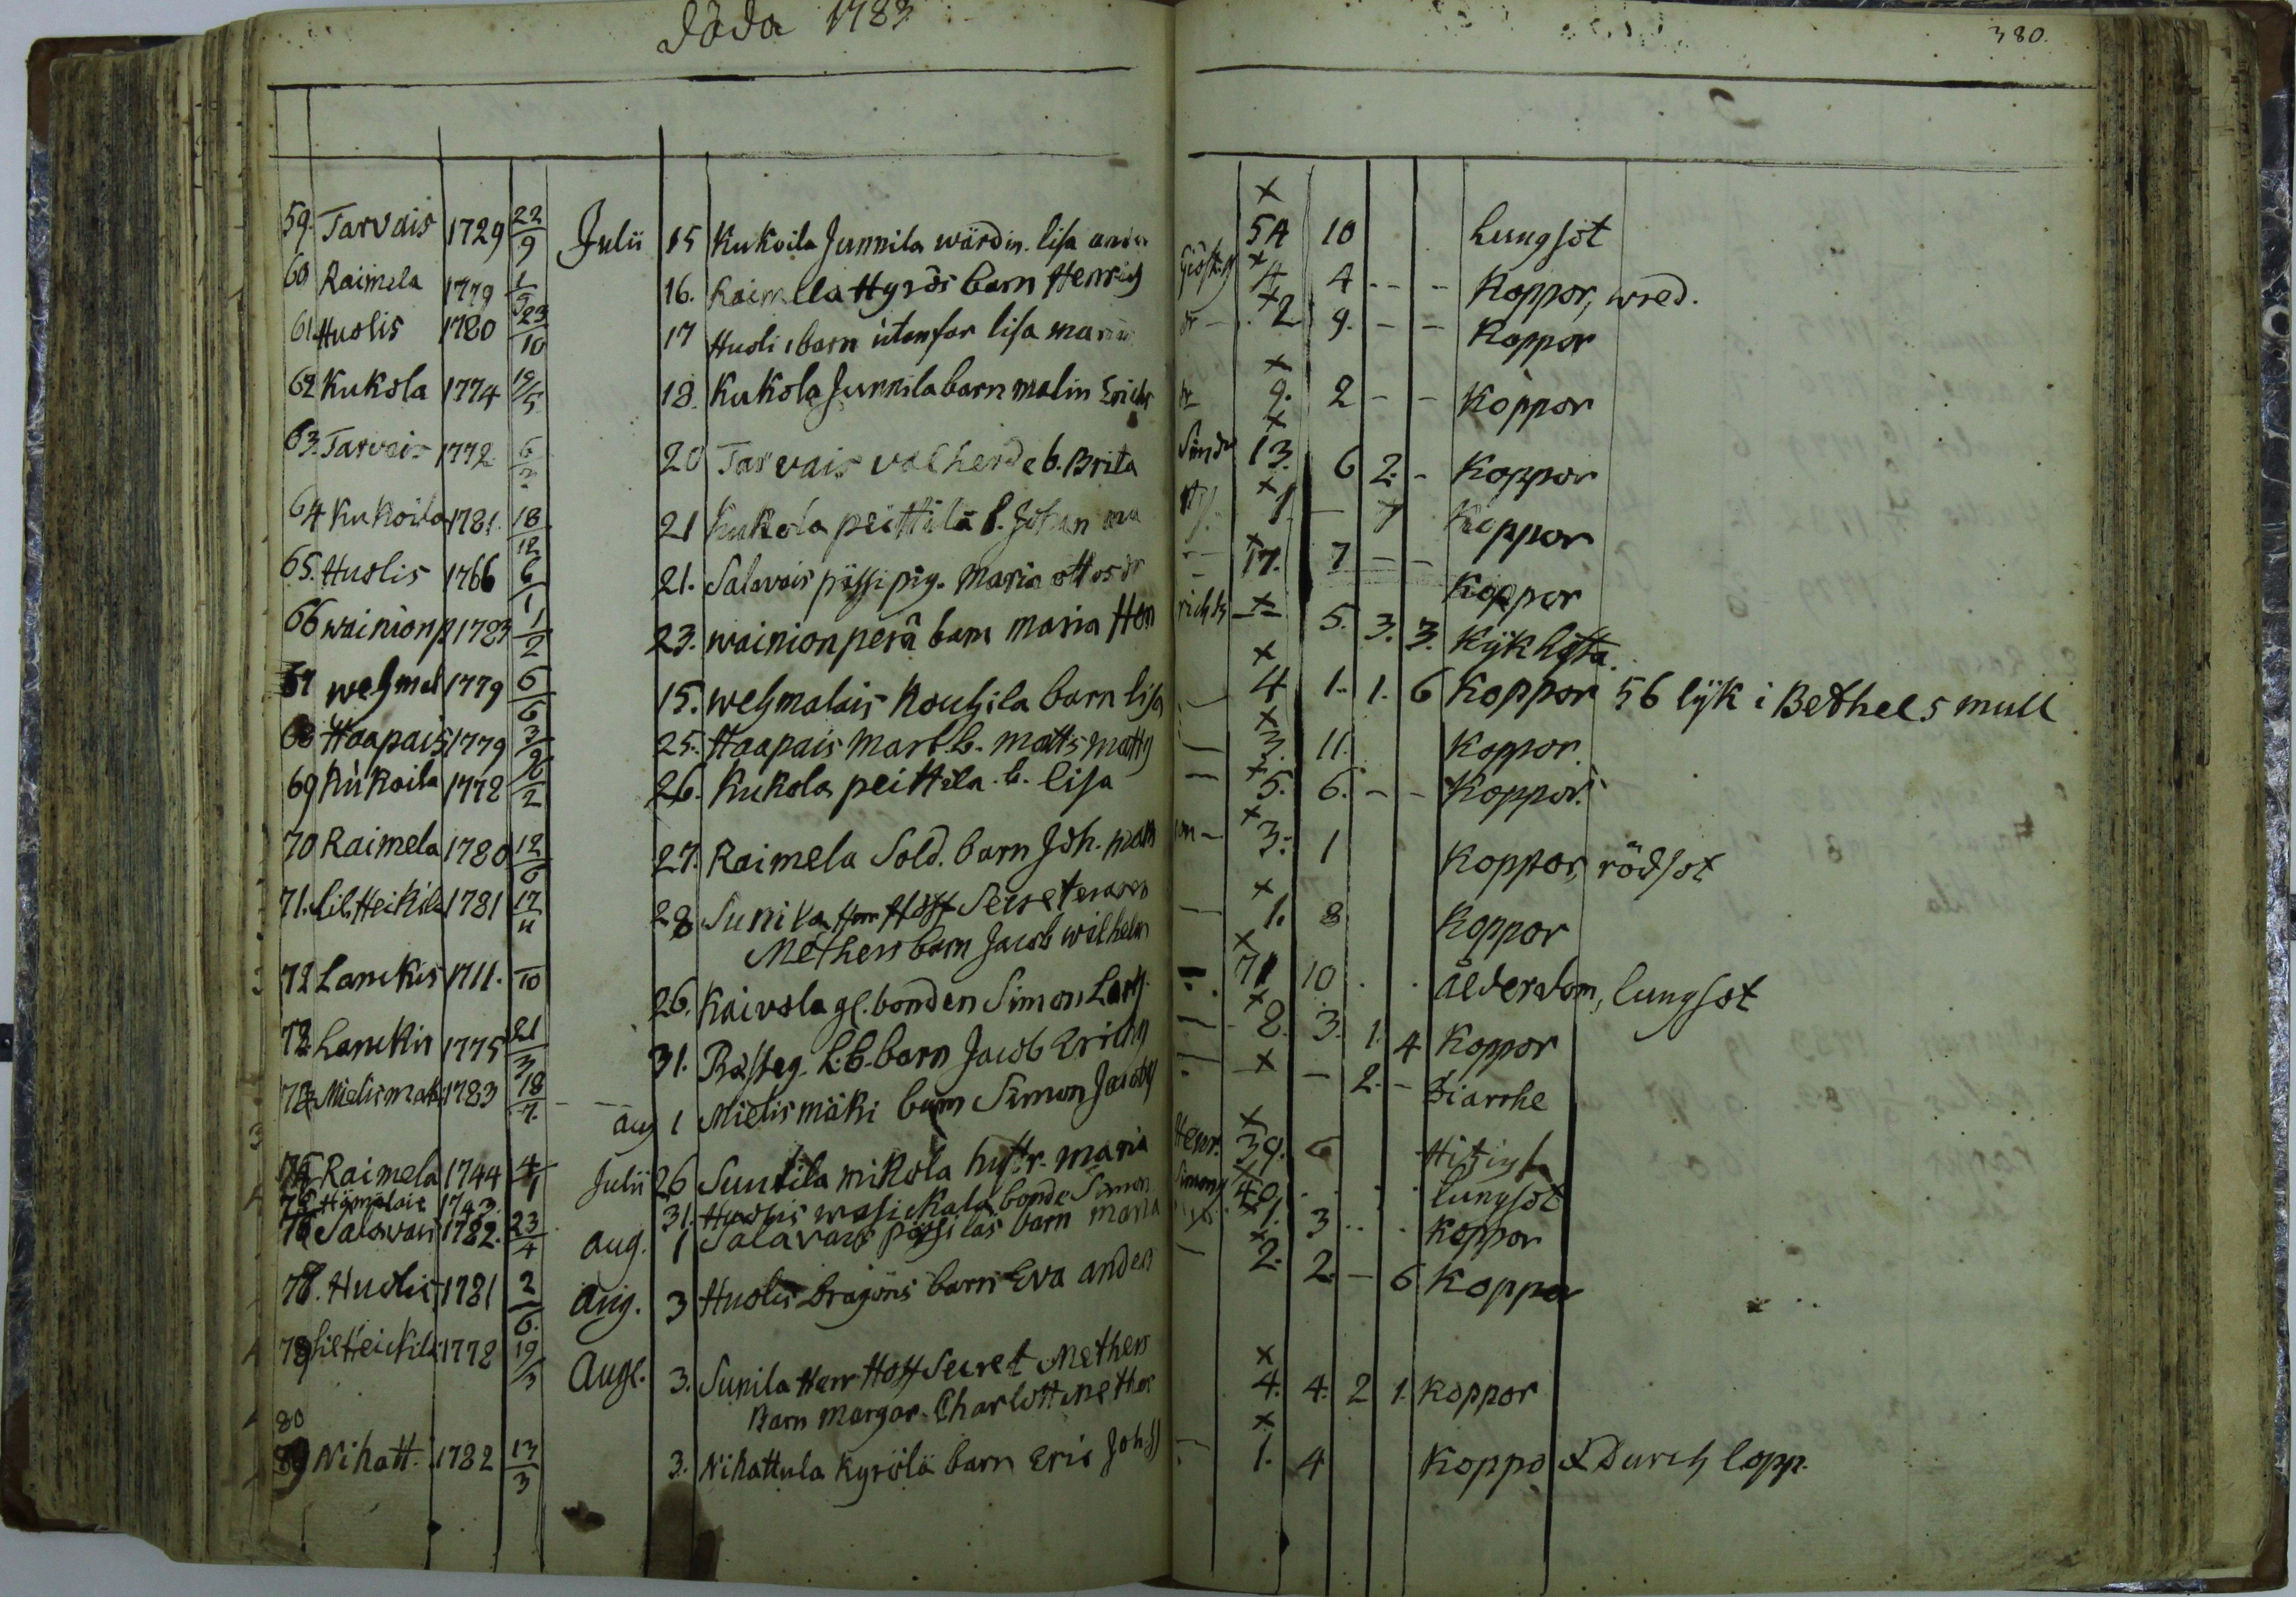 Döda 1783
380.
59. Tarvais 1729 22/9 Julii 15 Kukoila Junnila wärdin. lisa 54 10 Lungsot
60 Raimela 1779 16. Raimella Hyrös barn Henrich 4 4 - - Koppor, wred.
61 Huolis 1780 23/10 17 Huolis barn utanfor lisa maria 2 9. - - Koppor
62 Kukola 1774 19/5 18. Kukola Junnila barn malin Erichs 9. 2 - - Koppor
63. Tarvais 1772 20 Tarvais valherde b. Brita 13. 6 2. - Koppor
64 Kukoila 1781. 18/12 21 Kukola peittilä b. Johan 1 - 7 Koppor
65. Huolis 1766 6/1 21. Salavais pässi pig. Maria ottosdr 17. 7 - - Koppor
66 wainionp 1783 1/2 23. wainionperä barn maria Hen richs 5. 3. 3. Kykhosta.
67 wehmal 1779 6/6 15. wehmalais Kouhila barn lisa 4 1. 1. 6 Koppor 56 lyk i Bethels mull
68 Haapais 1779 3/9 25. Haapais mart. b. matts matts 3. 11. Koppor.
69 Kukoila 1778 6/2 26. Kukola peittila b. lisa 5. 6. - - Koppor.
70 Raimela 1780 12/6 27. Raimela Sold. barn Joh. matts on 3. 1 Koppor, rödsot
71. Lill Heikila 1781 17/11 28 Sunila Herr Hoff Secreteraren 1. 8 Koppor
Methers barn Jacob wilhelm
72 Lanckis 1711. /10 26. Kaivola gl. bonden Simon Lars 71 10 . . ålderdom, lungsot
73 Lanckis 1775 21/3 31. Rusteg. L. b. barn Jacob Erichs 8. 3. 1. 4 Koppor
74 Mielismäki 1783 18/7 Aug 1 Mielismäki barn Simon Jacobs - 2. - Diarrhe
75 Raimela 1744 4/1 Julii 26 Sunila mikola hustr. maria Henr. 39. 6 Hitsig
75 1743 31. Huolis bonde Simon Simons 40 . . . Lungsot
76 Salavais 1782. 23/4 Aug. 1 Salavais pässilas barn maria 1. 3 . . Koppor
78. Huolis 1781 2/6. Aug. 3 Huolis Dragons barn Eva anders 2. 2. - 6 Koppor
79 Lill Heickila 1778 19/3 Augt. 3. Sunila Herr Hoff Secret Methers 4. 4. 2 1. Koppor
Barn Margar. Charlott Mether
80 Nihatt. 1782 13/3 3. Nihattula Kyrölä barn Eric Johs 1. 4 Koppo & Durch lopp.